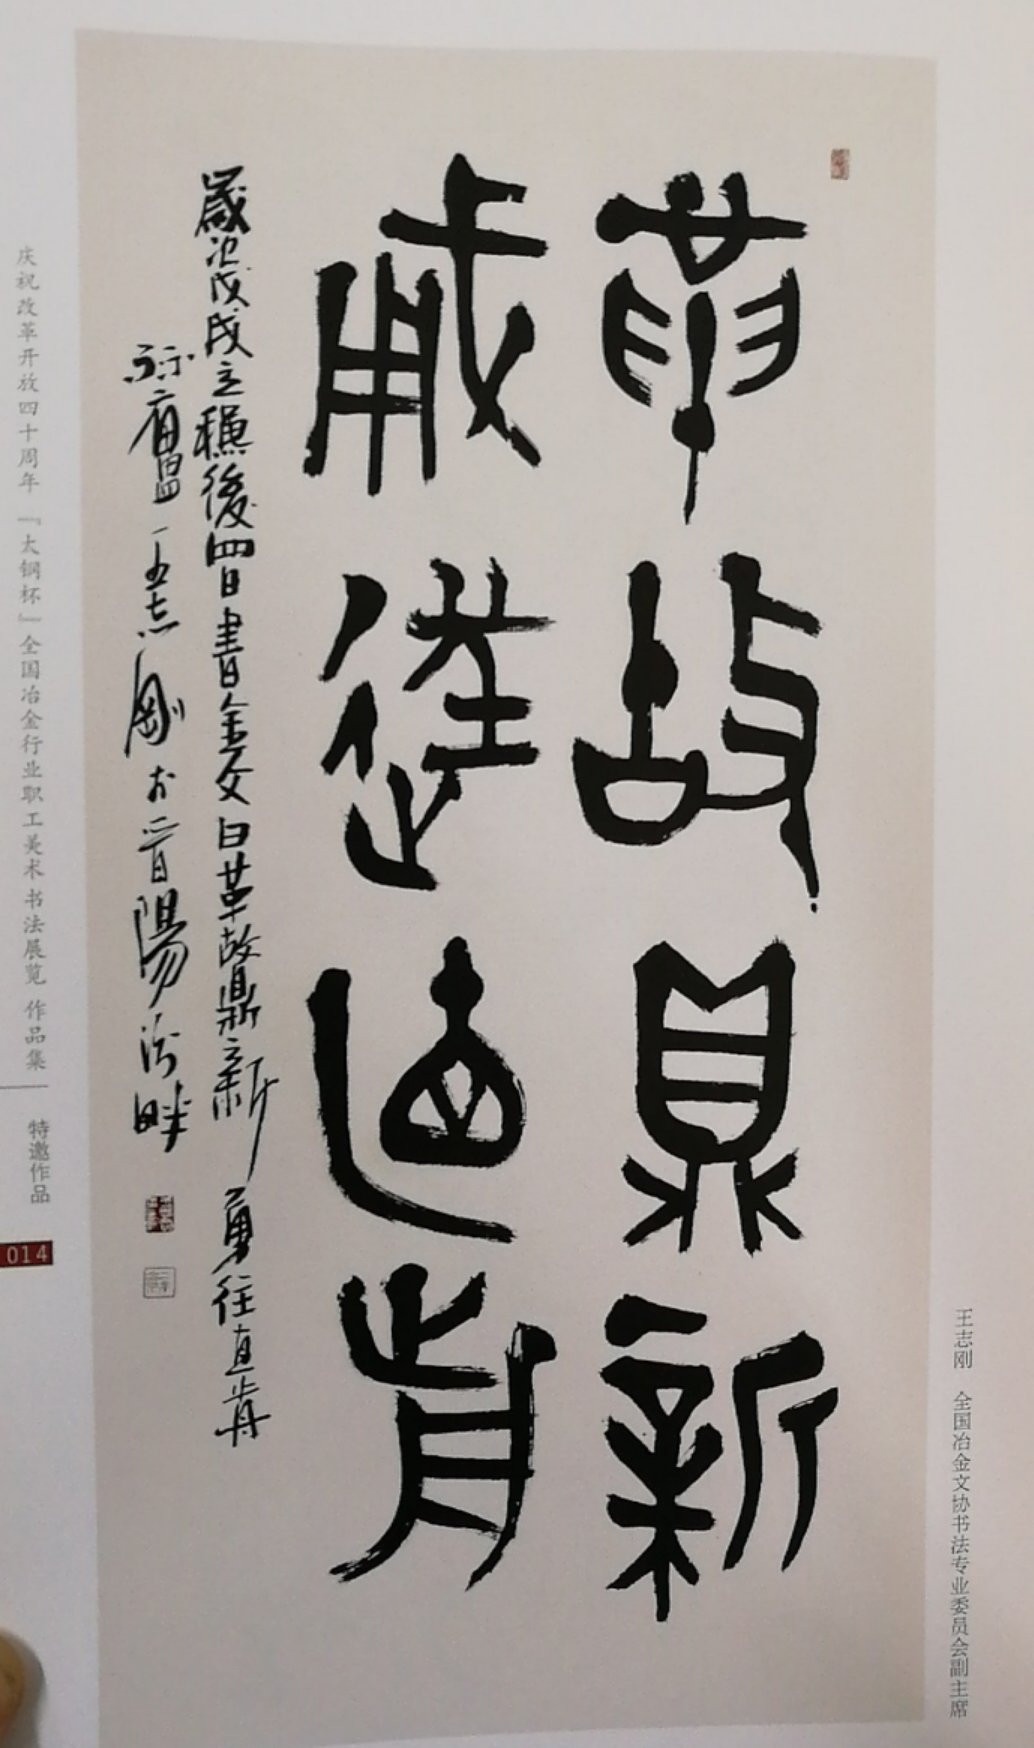 革故鼎新
勇往直歬
歲次戊戌立穐後四日書金文曰革故鼎新勇往直歬
王志剛於晋陽汾畔
王志刚 全国冶金文协书法专业委员会副主席
庆祝改革开放四十周年『太钢杯』全国冶金行业职工美术书法展览 作品集
特邀作品
014